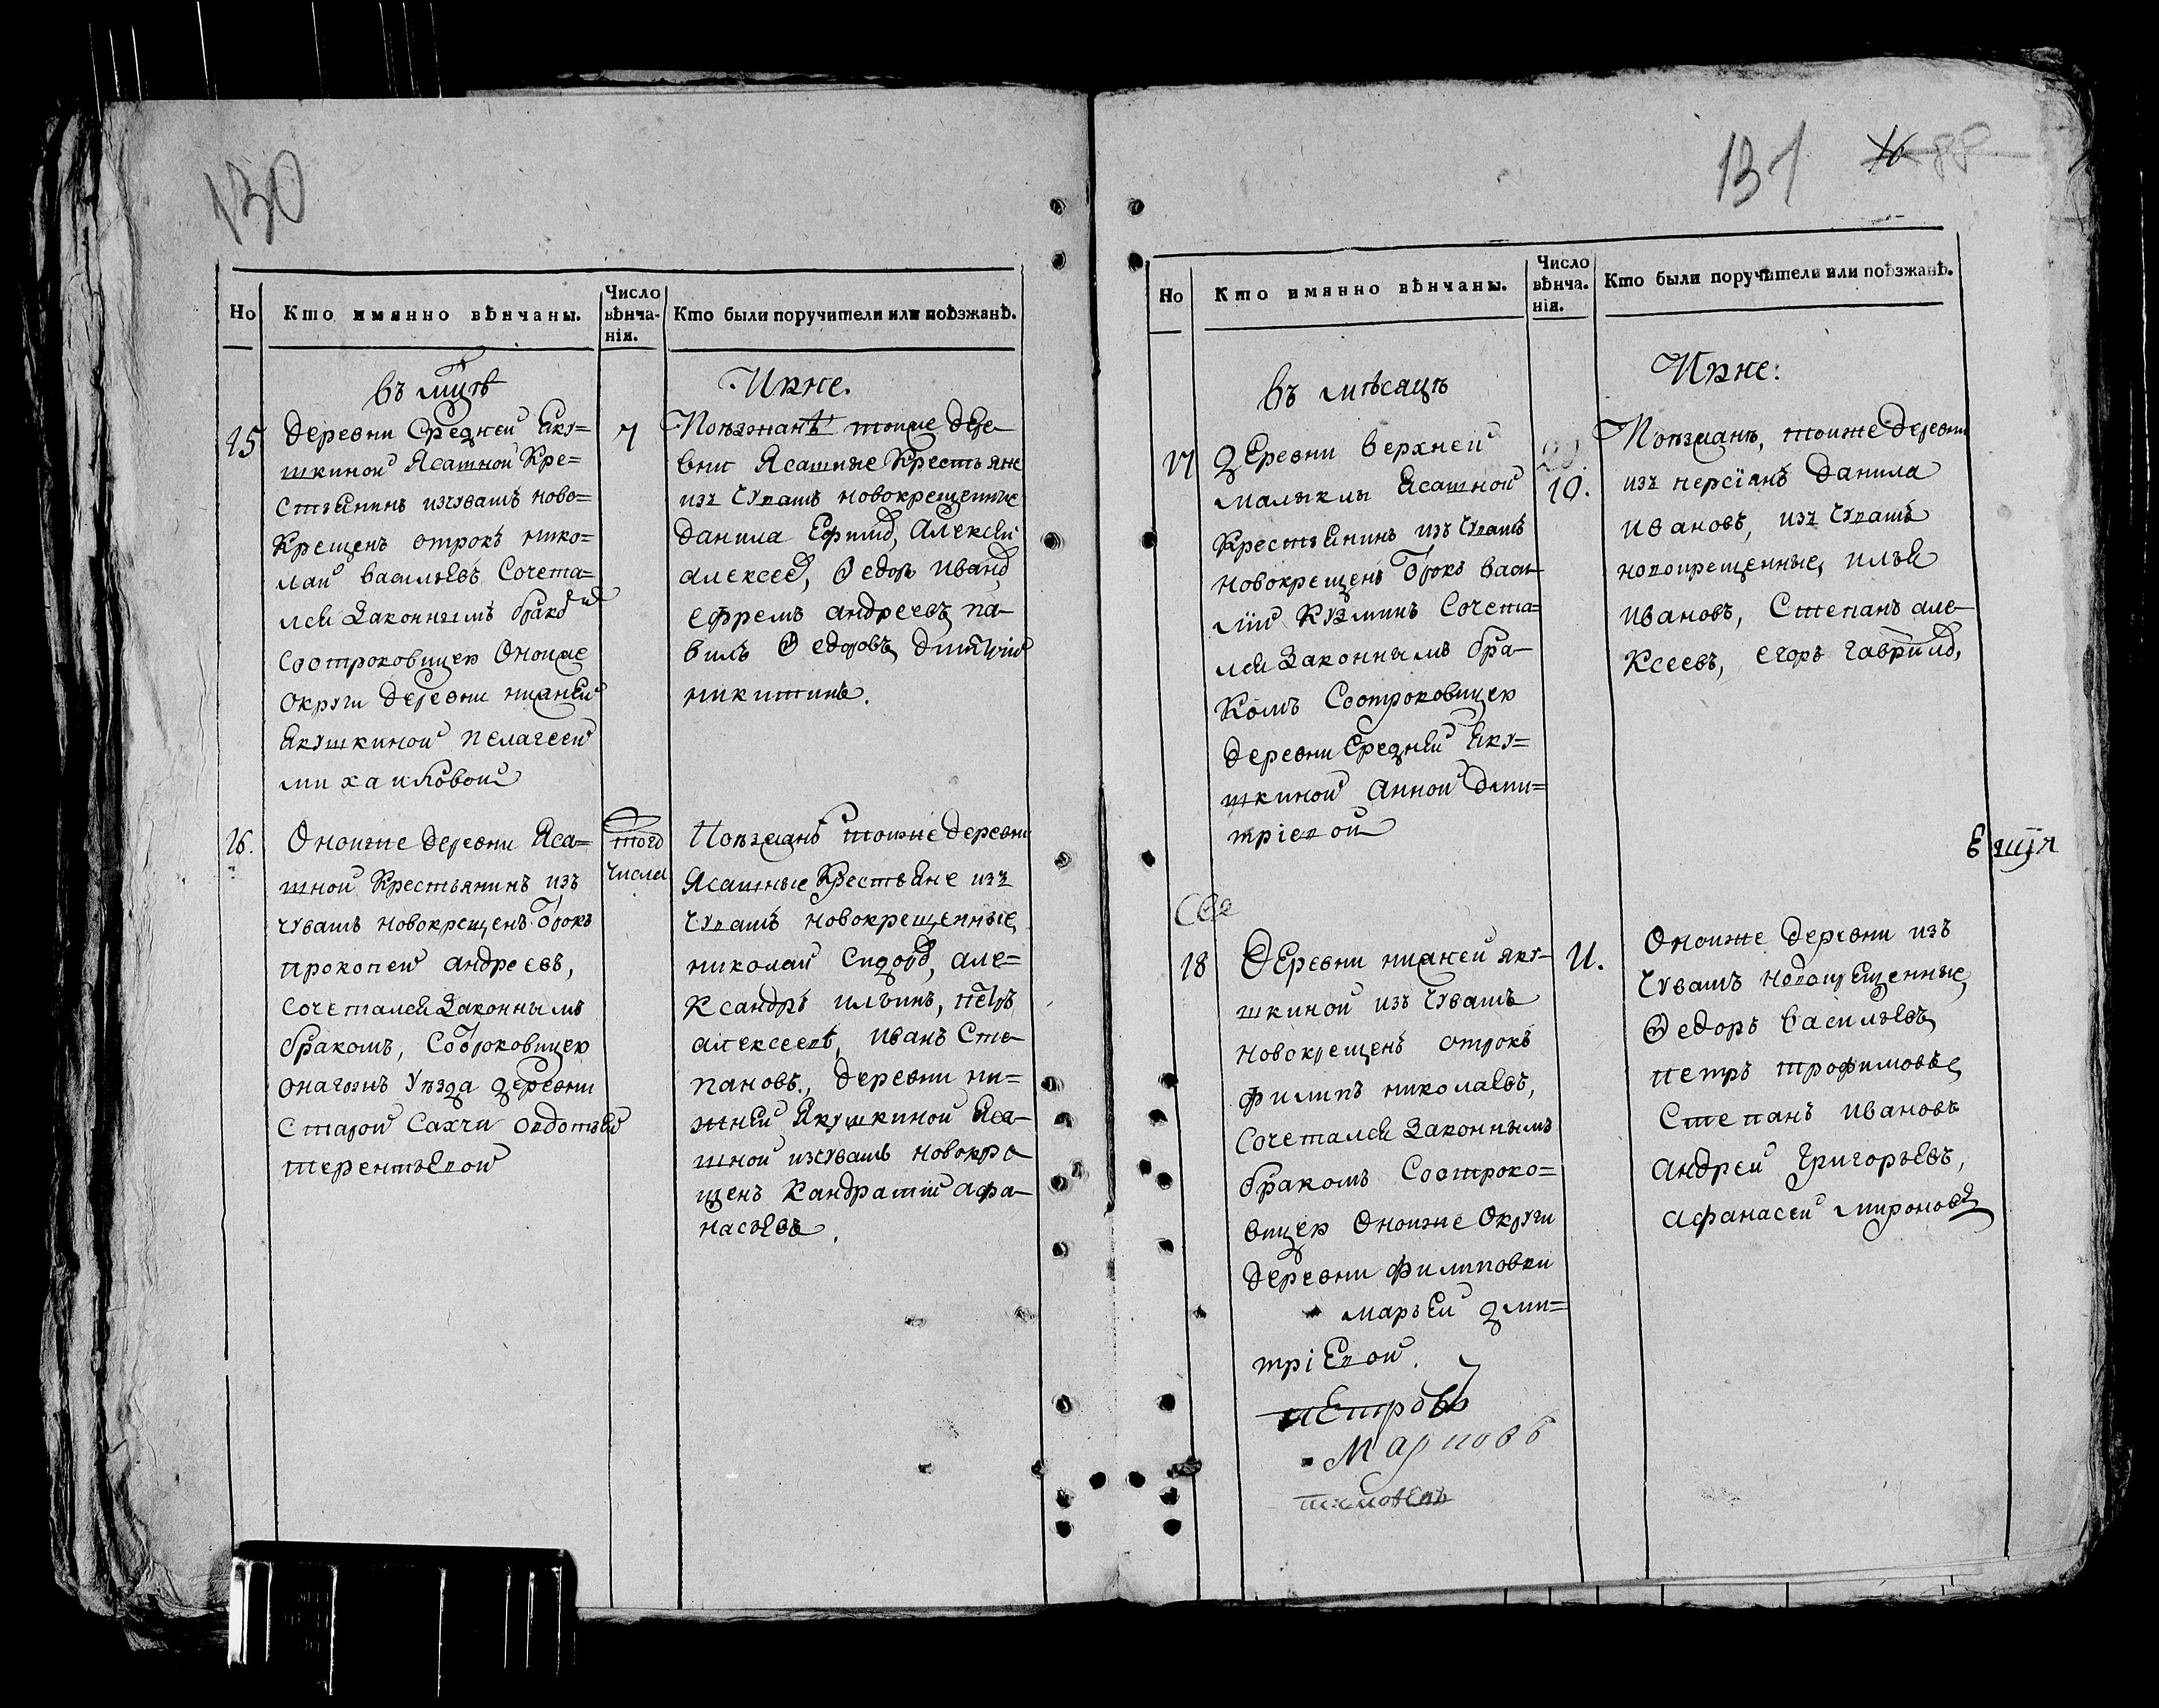 130
Но
Кто имянно вѣнчаны.
Число
вѣнча-
нія.
Кто были поручители или поѣзжанѣ.
въ мцѣ
Июне.
15
деревни Средней Яку=
шкиной Ясашной Кре=
стьянинъ изчувашъ ново=
крещенъ отрокъ нико=
лай васильевъ Сочета=
лся Законнымъ бракомъ
Соотроковицею Оноиже
округи деревни нижней
Якушкиной пелагеей
михаиловой
7
Поѣзжанѣ тоиже дере-
вни Ясашные Крестьяне
изъ Чувашъ новокрещенные
данила Ефимов, Алексеи
алексеев, Ѳедоръ иванов,
ефремъ андреевъ, па-
вилъ Ѳедоровъ, дмитрий
никитинъ.
16.
Оноиже деревни Яса=
шной Крестьянинъ изъ
чувашъ новокрещенъ отрокъ
прокопеи андреевъ,
сочетался Законнымъ
бракомъ, Соотроковицею
онагожъ уезда деревни
Старой Сахчи овдотьей
терентьевой
того
числа
Поѣзжанѣ тоиже деревни
Ясашные Крестьяне изъ
Чувашъ новокрещенные,
николаи Сидоров, але=
ксандръ ильинъ, петръ
алексеевъ, иванъ Сте-
пановъ, деревни ни=
жней Якушкиной Яса-
шной изчувашъ новокре
щенъ Кандратий афа-
насьевъ.
131
88
Но
Кто имянно вѣнчаны.
Число
вѣнча.
нія.
Кто были поручители или поѣзжанѣ.
въ мѣсяцѣ
Июне:
17
деревни верхней
малыклы Ясашной
Крестьянинъ изъ Чувашъ
новокрещенъ отрокъ васи-
лий Кузминъ Сочета=
лся Законнымъ бра-
комъ Соотроковицею
деревни Средней Яку=
шкиной анной дми=
тріевой
10.
Поѣзжанѣ, тоиже деревни
изъ персіянъ данила
ивановъ, изъ Чувашъ
новокрещенные, илья
ивановъ, Степанъ але-
ксеевъ, егоръ гаврилов,
18
деревни нижней яку-
шкиной изъ Чувашъ
новокрещенъ отрокъ
филипъ николаевъ,
Сочетался Законнымъ
бракомъ Соотроко=
вицею Оноиже Округи
деревни филиповки
марьей дми=
тріевой.
петровъ
Марповъ
11.
Оноиже деревни изъ
Чувашъ новокрещенные,
Ѳедоръ васильевъ,
петръ трофимовъ,
Степанъ ивановъ
андреи григорьевъ,
афанасеи мироновъ